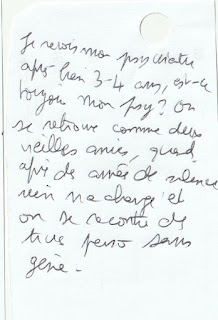 Je revois mon psychiatre
après bien 3-4 ans, est-ce
toujours mon psy? On
se retrouve comme deux
vieilles amies, quand
après des années de silence
rien n'a changé et
on se raconte des
trucs perso sans
gêne.